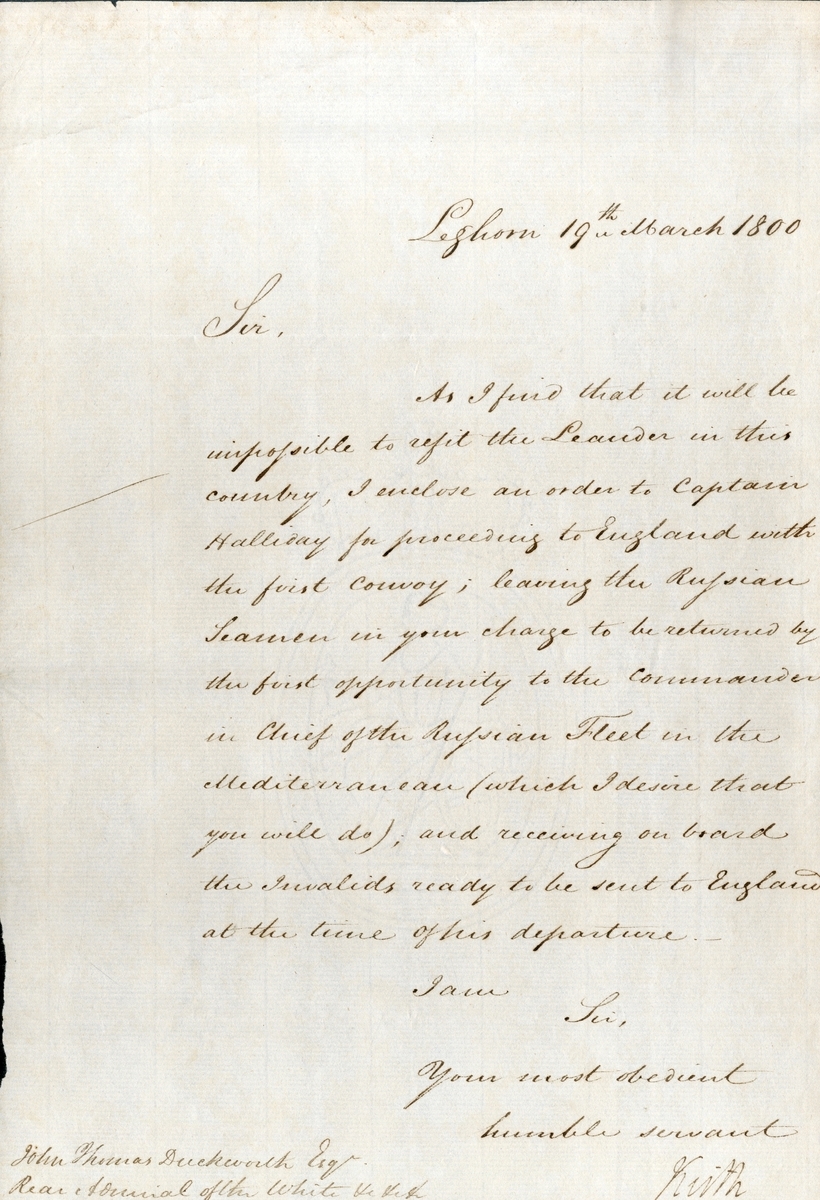 Leghorn 19th March 1800
Sir,
As I find that it will be
impossible to refit the Leander in this
country, I enclose an order to Captain
Halliday for proceeding to England with
the first Convoy; leaving the Russian
Seamen in your charge to be returned by
the first opportunity to the Commander
in Chief of the Russian Fleet in the
Mediterranean (which I desire that
you will do); and receiving on board
the Invalids ready to be sent to England
at the time of his departure. –
I am
Sir,
Your most obedient
humble servant
John Thomas Duckworth Esqr.
Rear Admiral of the White &c &c &c
Keith